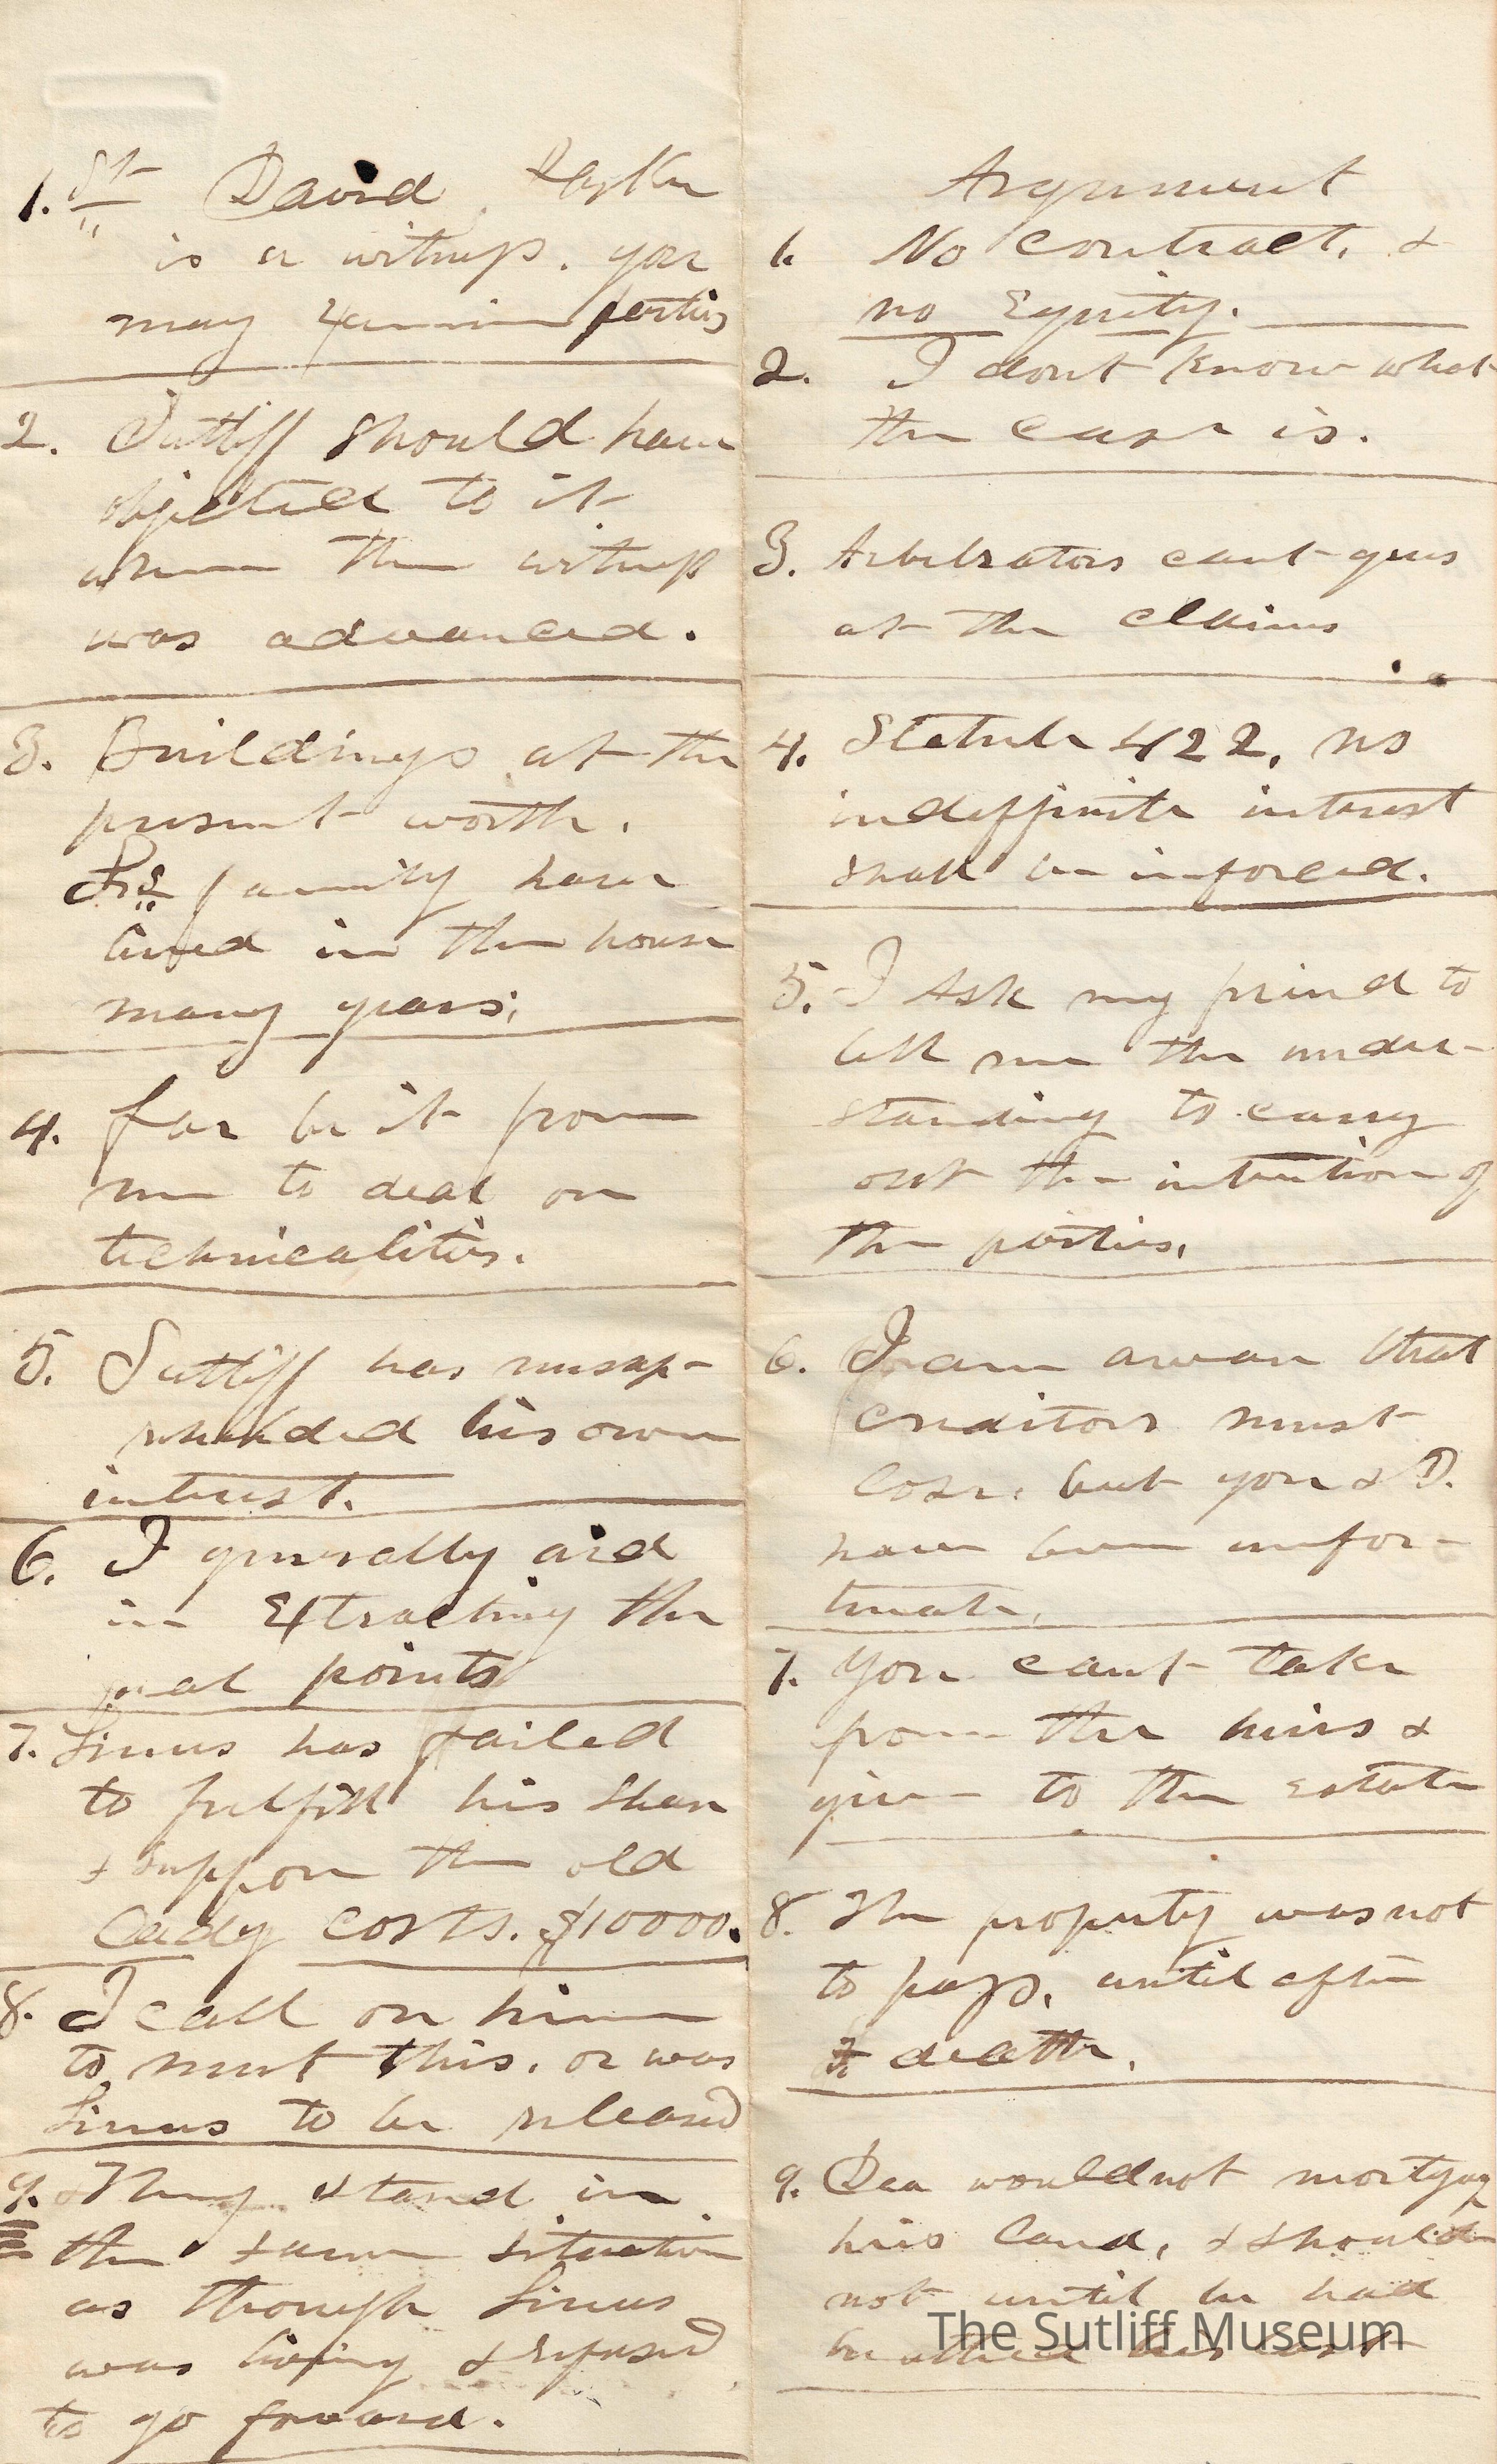 1. St David
is a witness. you
may Examine parties
2. Sutliff should have
objected to it
when the witness
was advanced.
3. Buildings at the
present worth.
family have
lived in the house
many years.
4. far be it from
me to deal on
technicalities.
5. Sutliff has misap-
rehended his own
interest.
6. I generally aid
in Extracting the
real points
7. Linus has failed
to fulfill his share
& suppore the old
Lady costs. $10000.
8. I call on him
to meet this. or was
Linus to be released
9. They stand in
the same situation
as though Linus
was living & refused
to go forward.
Argument
1. No contract, &
no Equity.
2. I dont know what
the case is.
3. Arbitrators cant gues
at the claims
4. Statute 422, no
indeffinite interest
shall be inforced.
5. I Ask my friend to
tell me the under-
standing to carry
out the intention of
the parties,
6. I am aware that
creditors must
lose, but you & D.
have been unfor-
tunate,
7. You cant take
from the heirs &
give to the estate
8. The property was not
to pass, until after
death.
9. Dea would not mortgag
his land, & should
not until he had
breathed his last
The Sutliff Museum